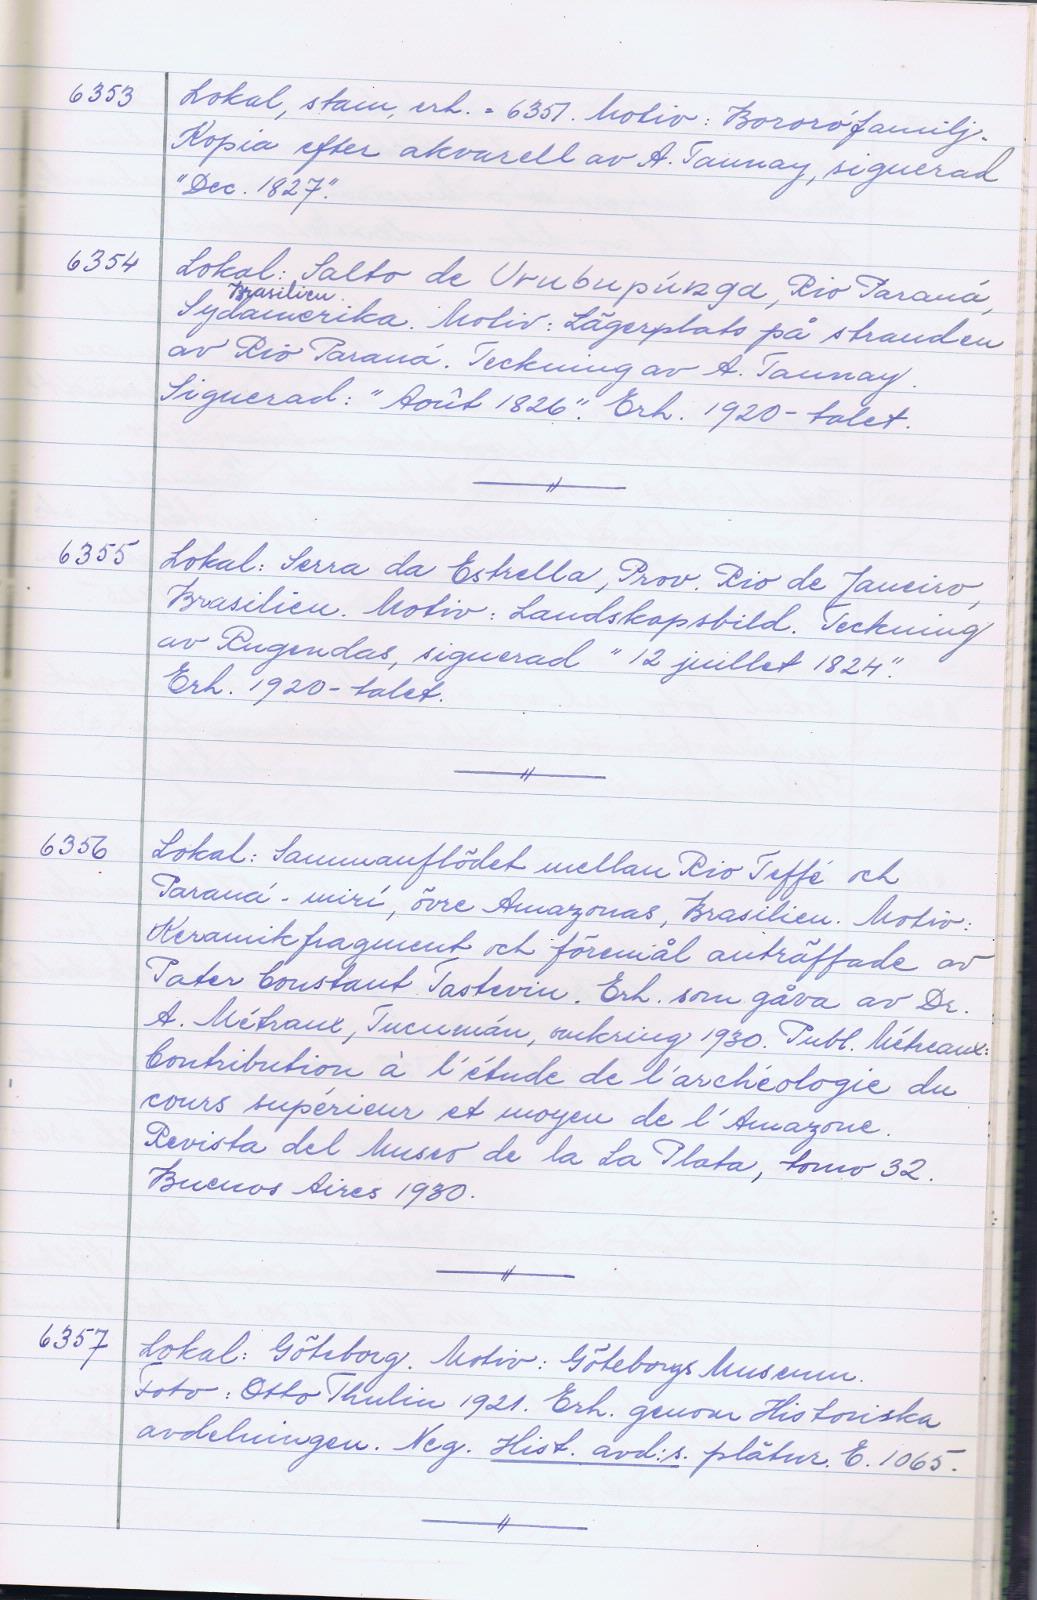 6353 Lokal, stam, erh. = 6351. Motiv: Bororófamilj.
Kopia efter akvarell av A. Taunay, signerad
"Dec. 1827".
6354 Lokal: Salto de Urubupúnga, Rio Paraná,
Brasilien.
Sydamerika. Motiv: Lägerplats på stranden
av Rio Paraná. Teckning av A. Taunay.
Signerad: "Août 1826". Erh. 1920-talet.
6355 Lokal: Serra da Estrella, Prov. Rio de Janeiro,
Brasilien. Motiv: Landskapsbild. Teckning
av Rugendas, signerad "12 juillet 1824".
Erh. 1920-talet.
6356 Lokal: Sammanflödet mellan Rio Teffé och
Paraná-mirí, övre Amazonas, Brasilien. Motiv:
Keramikfragment och föremål anträffade av
Pater Constant Tastevin. Erh. som gåva av Dr.
A. Métraux, Tucumán, omkring 1930. Publ. Métreaux:
Contribution à l'étude de l'archéologie du
cours supérieur et moyen de l'Amazone.
Revista del Museo de la La Plata, tomo 32.
Buenos Aires 1930.
6357 Lokal: Göteborg. Motiv: Göteborgs Museum.
Foto: Otto Thulin 1921. Erh. genom Historiska
avdelningen. Neg. Hist. avd:s. plåtnr. E. 1065.